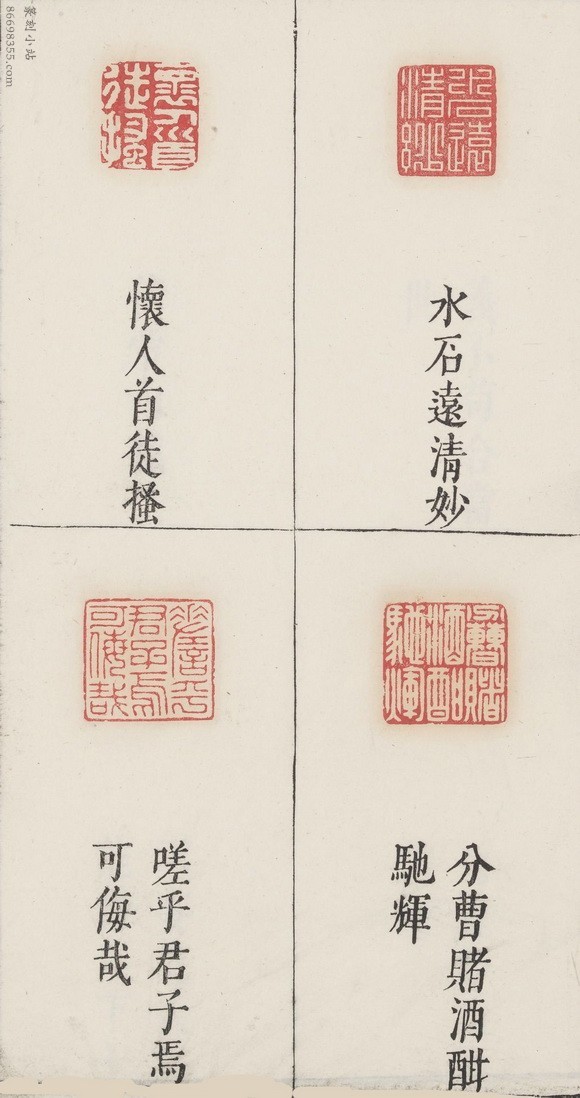 水石遠清妙
懷人首徒搔
分曹賭酒酣
馳輝
嗟乎君子焉
可侮哉
篆刻小站
86698355.com